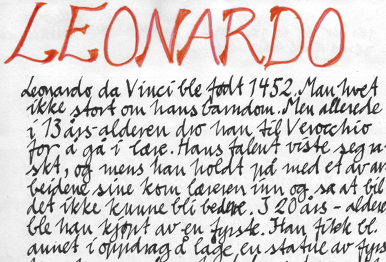 LEONARDO
Leonardo da Vinci ble født 1452. Man vet
ikke stort om hans barndom. Men allerede
i 13 års-alderen dro han til Verocchio
for å gå i lære. Hans talent viste seg ra-
skt, og mens han holdt på med et av ar-
beidene sine kom læreren inn og sa at bl
det ikke kunne bli bedre. I 20 års-aldere
ble han kjøpt av en fyrste. Han fikk bl.
annet i oppdrag å lage en statue av fyrs